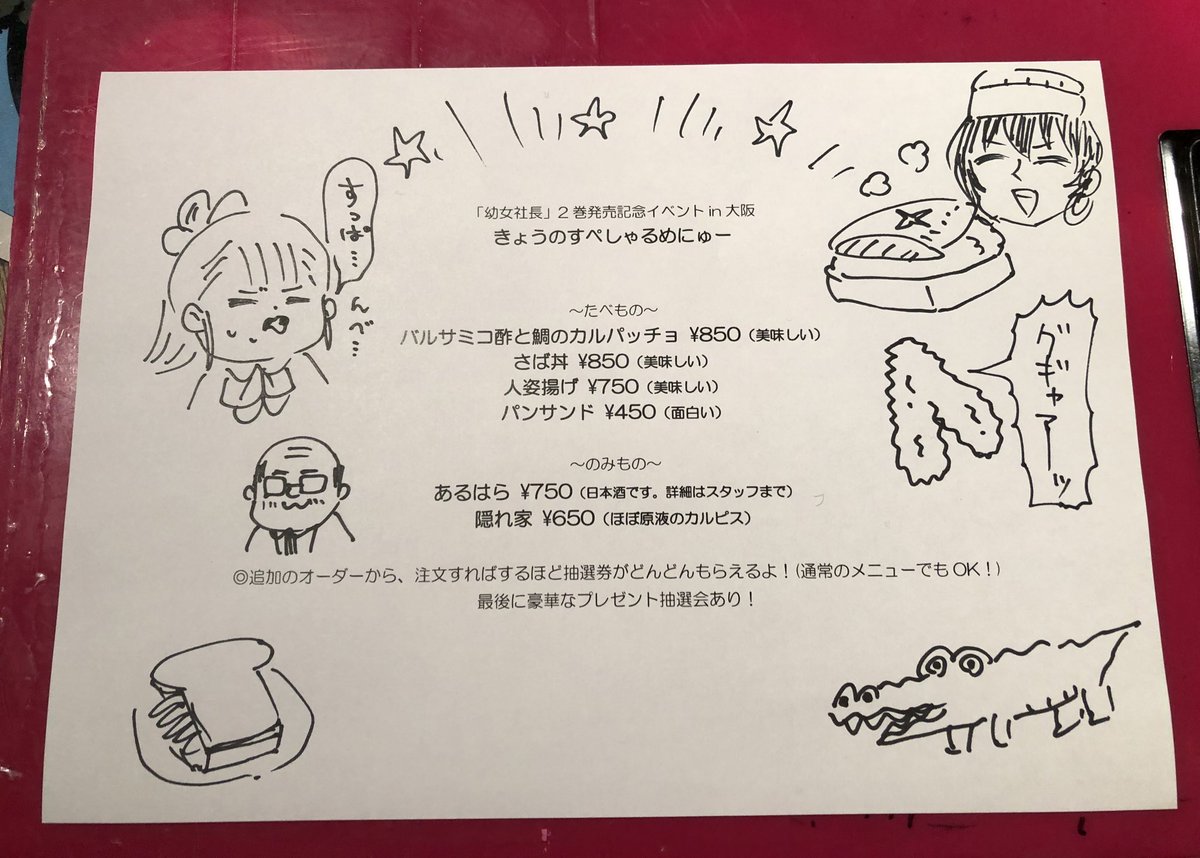 「幼女社長」2巻発売記念イベント in 大阪
きょうのすぺしゃるめにゅー
すっぱ…
んべ…
～たべもの～
バルサミコ酢と鯛のカルパッチョ ¥850（美味しい）
さば丼 ¥850（美味しい）
人姿揚げ ¥750（美味しい）
パンサンド ¥450（面白い）
グギャアーッ
～のみもの～
あるはら ¥750（日本酒です。詳細はスタッフまで）
隠れ家 ¥650（ほぼ原液のカルピス）
◎追加のオーダーから、注文すればするほど抽選券がどんどんもらえるよ！(通常のメニューでもOK！)
最後に豪華なプレゼント抽選会あり！